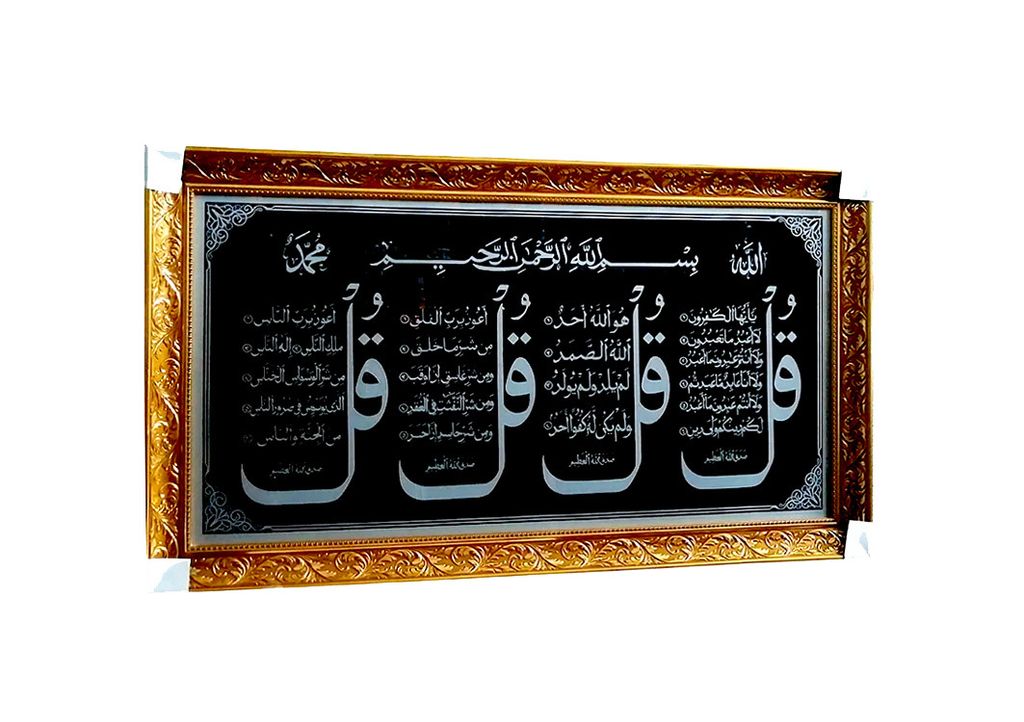 الله
بِسْمِ اللهِ الرَّحْمٰنِ الرَّحِيمِ
مُحَمَّد
قُلْ
يَأَيُّهَا الْكَفِرُونَ ①
لَا أَعْبُدُ مَا تَعْبُدُونَ ②
وَلَا أَنْتُمْ عَبِدُونَ مَا أَعْبُدُ ③
وَلَا أَنَا عَابِدٌ مَا عَبَدتُّمْ ④
وَلَا أَنْتُمْ عَبِدُونَ مَا أَعْبُدُ ⑤
لَكُمْ دِينُكُمْ وَلِيَ دِينِ ⑥
صدق الله العظيم
قُلْ
هُوَ اللهُ أَحَدٌ ①
اللهُ الصَّمَدُ ②
لَمْ يَلِدْ وَلَمْ يُولَدْ ③
وَلَمْ يَكُن لَهُ كُفُوًا أَحَدٌ ④
صدق الله العظيم
قُلْ
أَعُوذُ بِرَبِّ الْفَلَقِ ①
مِن شَرِّ مَا خَلَقَ ②
وَمِن شَرِّ غَاسِقٍ إِذَا وَقَبَ ③
وَمِن شَرِّ النَّفَّثَتِ فِي الْعُقَدِ ④
وَمِن شَرِّ حَاسِدٍ إِذَا حَسَدَ ⑤
صدق الله العظيم
قُلْ
أَعُوذُ بِرَبِّ النَّاسِ ①
مَلِكِ النَّاسِ ② إِلَهِ النَّاسِ ③
مِن شَرِّ الْوَسْوَاسِ الْخَنَّاسِ ④
الَّذِي يُوَسْوِسُ فِي صُدُورِ النَّاسِ ⑤
مِنَ الْجِنَّةِ وَالنَّاسِ ⑥
صدق الله العظيم